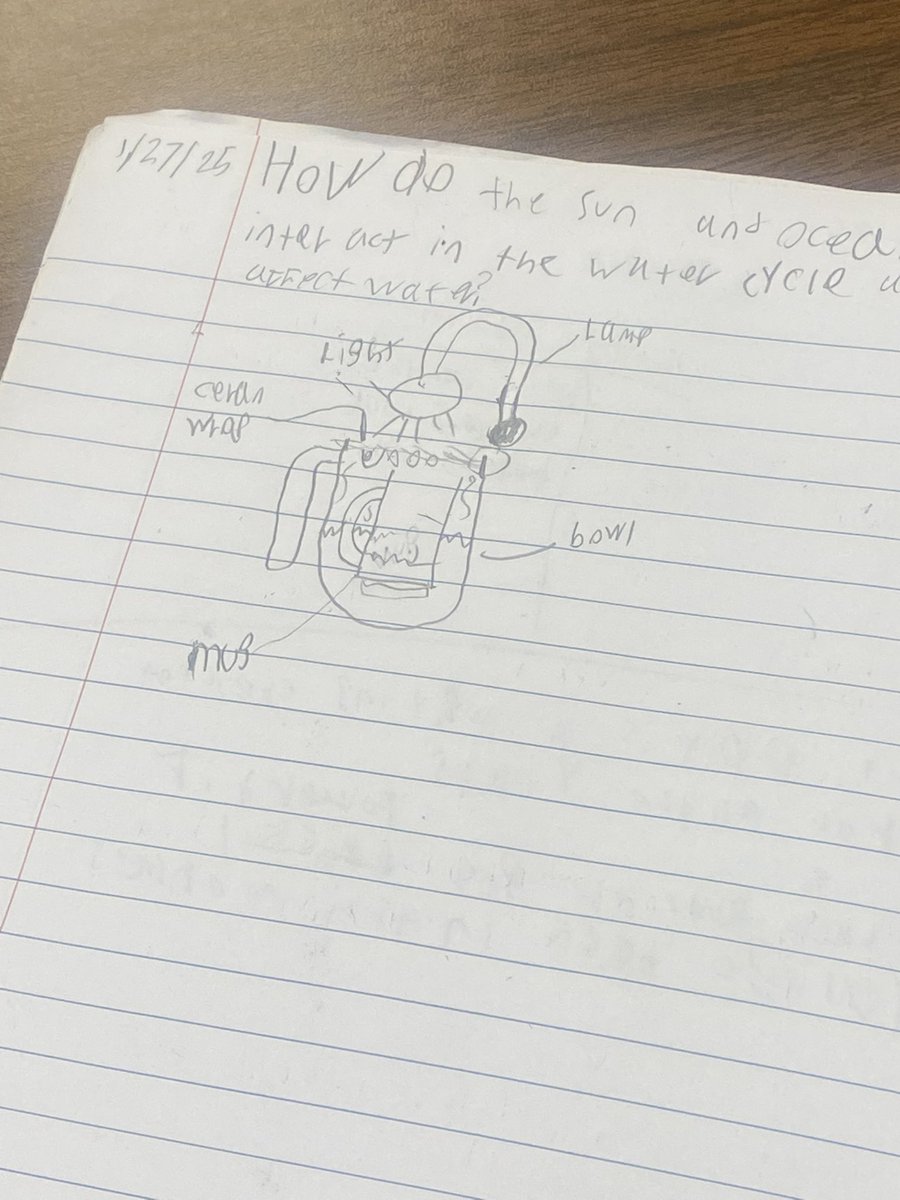 1/27/25 How do the sun and ocea
interact in the water cycle a
affect water?
Lamp
Light
ceran
wrap
bowl
mug